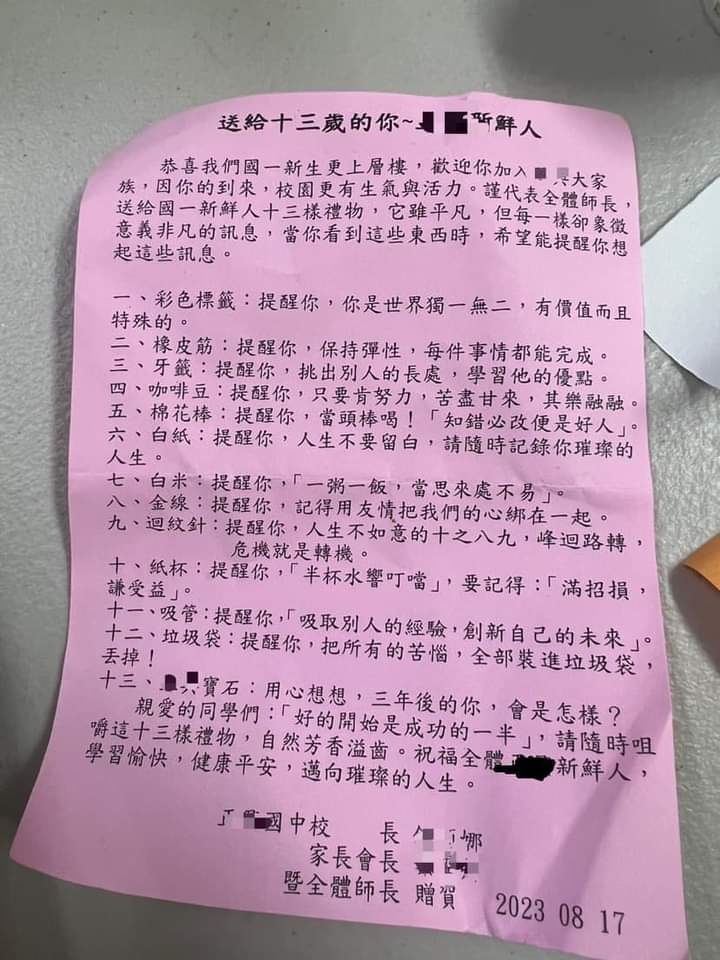 送給十三歲的你~ 新鮮人
恭喜我們國一新生更上層樓，歡迎你加入 大家
族，因你的到來，校園更有生氣與活力。謹代表全體師長，
送給國一新鮮人十三樣禮物，它雖平凡，但每一樣卻象徵
意義非凡的訊息，當你看到這些東西時，希望能提醒你想
起這些訊息。
一、彩色標籤：提醒你，你是世界獨一無二，有價值而且
特殊的。
二、橡皮筋：提醒你，保持彈性，每件事情都能完成。
三、牙籤：提醒你，挑出別人的長處，學習他的優點。
四、咖啡豆：提醒你，只要肯努力，苦盡甘來，其樂融融。
五、棉花棒：提醒你，當頭棒喝！「知錯必改便是好人」。
六、白紙：提醒你，人生不要留白，請隨時記錄你璀璨的
人生。
七、白米：提醒你，「一粥一飯，當思來處不易」。
八、金線：提醒你，記得用友情把我們的心綁在一起。
九、迴紋針：提醒你，人生不如意的十之八九，峰迴路轉，
危機就是轉機。
十、紙杯：提醒你，「半杯水響叮噹」，要記得：「滿招損，
謙受益」。
十一、吸管：提醒你，「吸取別人的經驗，創新自己的未來」。
十二、垃圾袋：提醒你，把所有的苦惱，全部裝進垃圾袋，
丟掉！
十三、 寶石：用心想想，三年後的你，會是怎樣？
親愛的同學們：「好的開始是成功的一半」，請隨時咀
嚼這十三樣禮物，自然芳香溢齒。祝福全體 新鮮人，
學習愉快，健康平安，邁向璀璨的人生。
國中校 長 娜
家長會長
暨全體師長 贈賀
2023 08 17